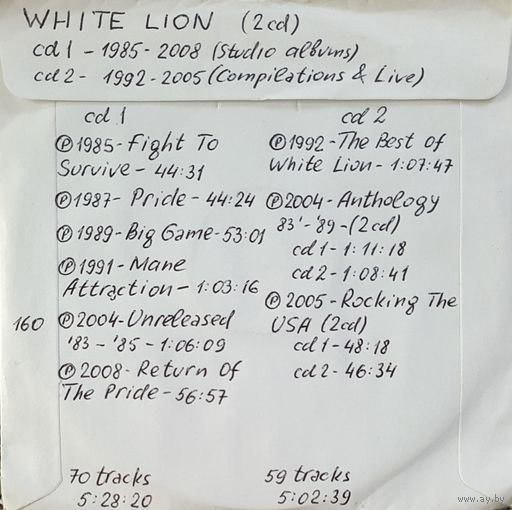 WHITE LION (2cd)
cd1 - 1985-2008 (Studio albums)
cd2 - 1992-2005 (Compilations & Live)
cd 1
Ⓟ1985-Fight To
Survive - 44:31
Ⓟ1987- Pride - 44:24
Ⓟ1989-Big Game-53:01
Ⓟ1991-Mane
Attraction - 1:03:16
160
Ⓟ2004-Unreleased
'83 - '85 - 1:06:09
Ⓟ2008-Return Of
The Pride - 56:57
70 tracks
5:28:20
cd 2
Ⓟ1992-The Best of
White Lion - 1:07:47
Ⓟ2004-Anthology
83'-'89-(2cd)
cd1-1:11:18
cd2-1:08:41
Ⓟ2005-Rocking The
USA (2cd)
cd1-48:18
cd2-46:34
59 tracks
5:02:39
www.ay.by